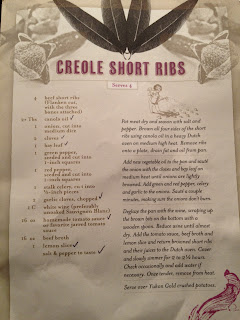 CREOLE SHORT RIBS
Serves 4
4 beef short ribs
(flanken cut,
with the three
bones attached)
2+ Tbs canola oil ✓
1 onion, cut into
medium dice
1 clove ✓
1 bay leaf ✓
1 green pepper,
seeded and cut into
1-inch squares
1 red pepper,
seeded and cut into
1-inch squares
2 stalk celery, cut into
½-inch pieces
1 garlic cloves, chopped ✓
1 C white wine (preferably
unoaked Sauvignon Blanc)
16 oz homemade tomato sauce ✓
or favorite jarred tomato
sauce
16 oz beef broth
1 lemon slice ✓
salt & pepper to taste ✓
Pat meat dry and season with salt and
pepper. Brown all four sides of the short
ribs using canola oil in a heavy Dutch
oven on medium high heat. Remove ribs
onto a plate, drain fat and oil from pan.
Add new vegetable oil to the pan and sauté
the onion with the cloves and bay leaf on
medium heat until onions are lightly
browned. Add green and red pepper, celery
and garlic to the onions. Sauté a couple
minutes, making sure the onion don't burn.
Deglaze the pan with the wine, scraping up
the brown bits on the bottom with a
wooden spoon. Reduce wine until almost
dry. Add the tomato sauce, beef broth and
lemon slice and return browned short ribs
and their juices to the Dutch oven. Cover
and slowly simmer for 2 to 2½ hours.
Check occasionally and add water if
necessary. Once tender, remove from heat.
Serve over Yukon Gold crushed potatoes.